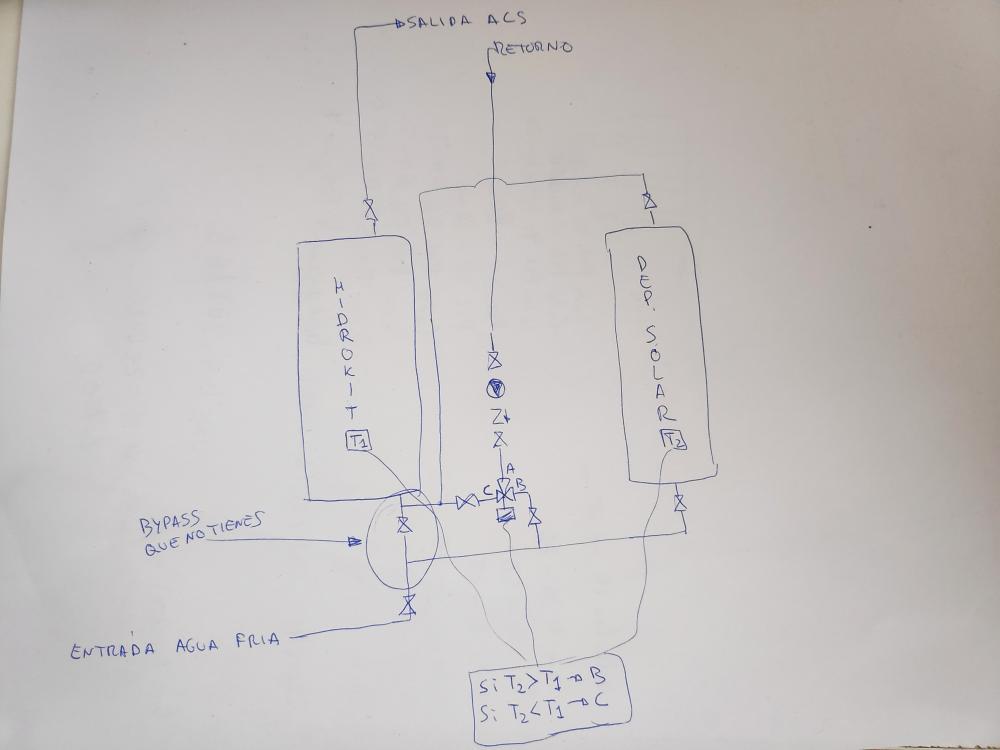 SALIDA ACS
RETORNO
HIDROKIT
T1
DEP. SOLAR
T2
A
B
C
BYPASS
QUE NO TIENES
ENTRADA AGUA FRIA
Si T2>T1→B
Si T2<T1→C